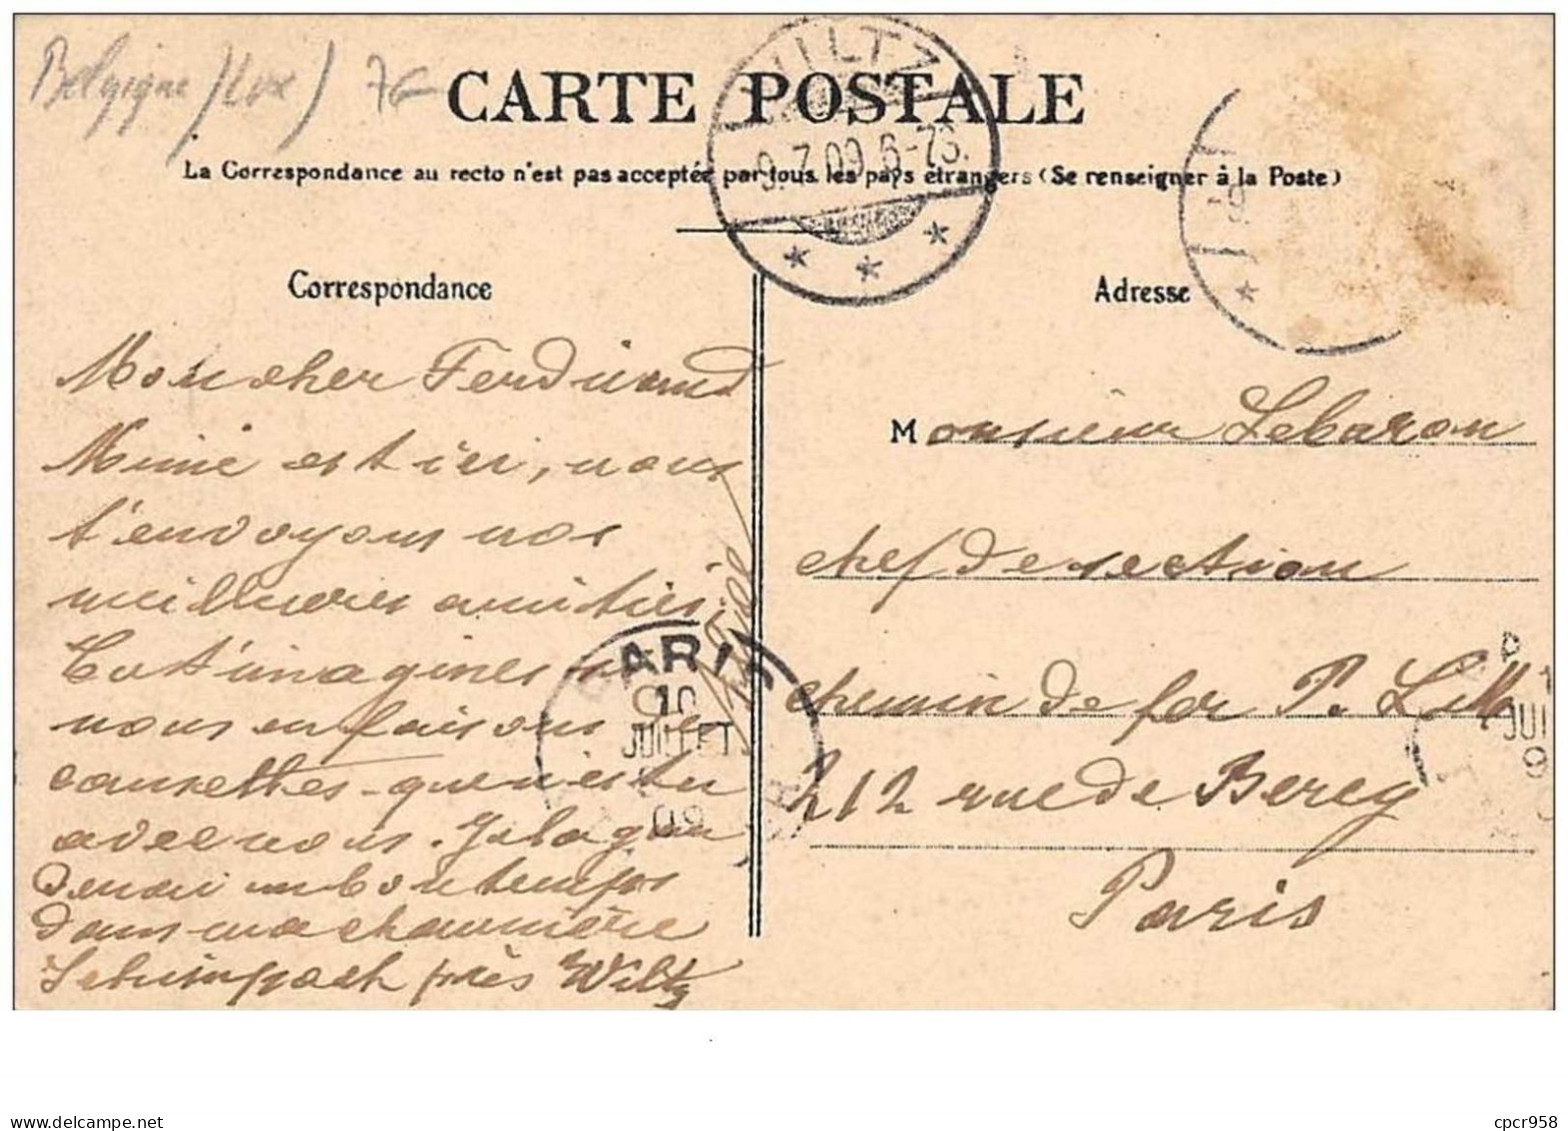 Belgique / Lux ) 7€
CARTE POSTALE
WILTZ
9.7.09.6-7S.
La Correspondance au recto n'est pas acceptée par tous les pays étrangers (Se renseigner à la Poste)
Correspondance
Mon cher Ferdinand
Mimie est ici, nous
t'envoyons nos
meilleures amitiés.
Tu t'imagines si
nous en faisons des
causettes - que n'es-tu
avec nous.
un bon temps
dans ma chaumière
Schimpach près Wiltz
PARIS
10
JUILLET
09
Adresse
Monsieur Lebaron
chef de section
chemin de fer P. L.
212 rue de Bercy
Paris
P
JUI
9
delcampe.net
cpcr958